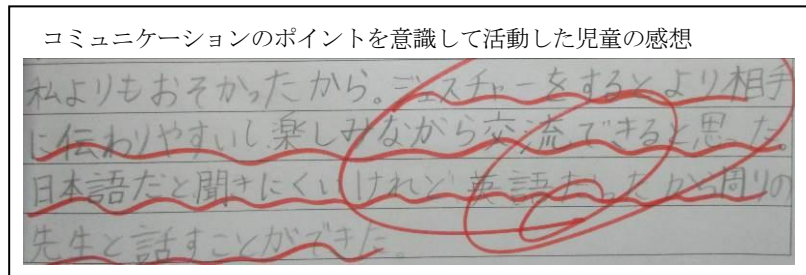 コミュニケーションのポイントを意識して活動した児童の感想
私よりもおそかったから。ジェスチャーをするとより相手
に伝わりやすいし楽しみながら交流できると思った。
日本語だと聞きにくいけれど英語だったから周りの
先生と話すことができた。